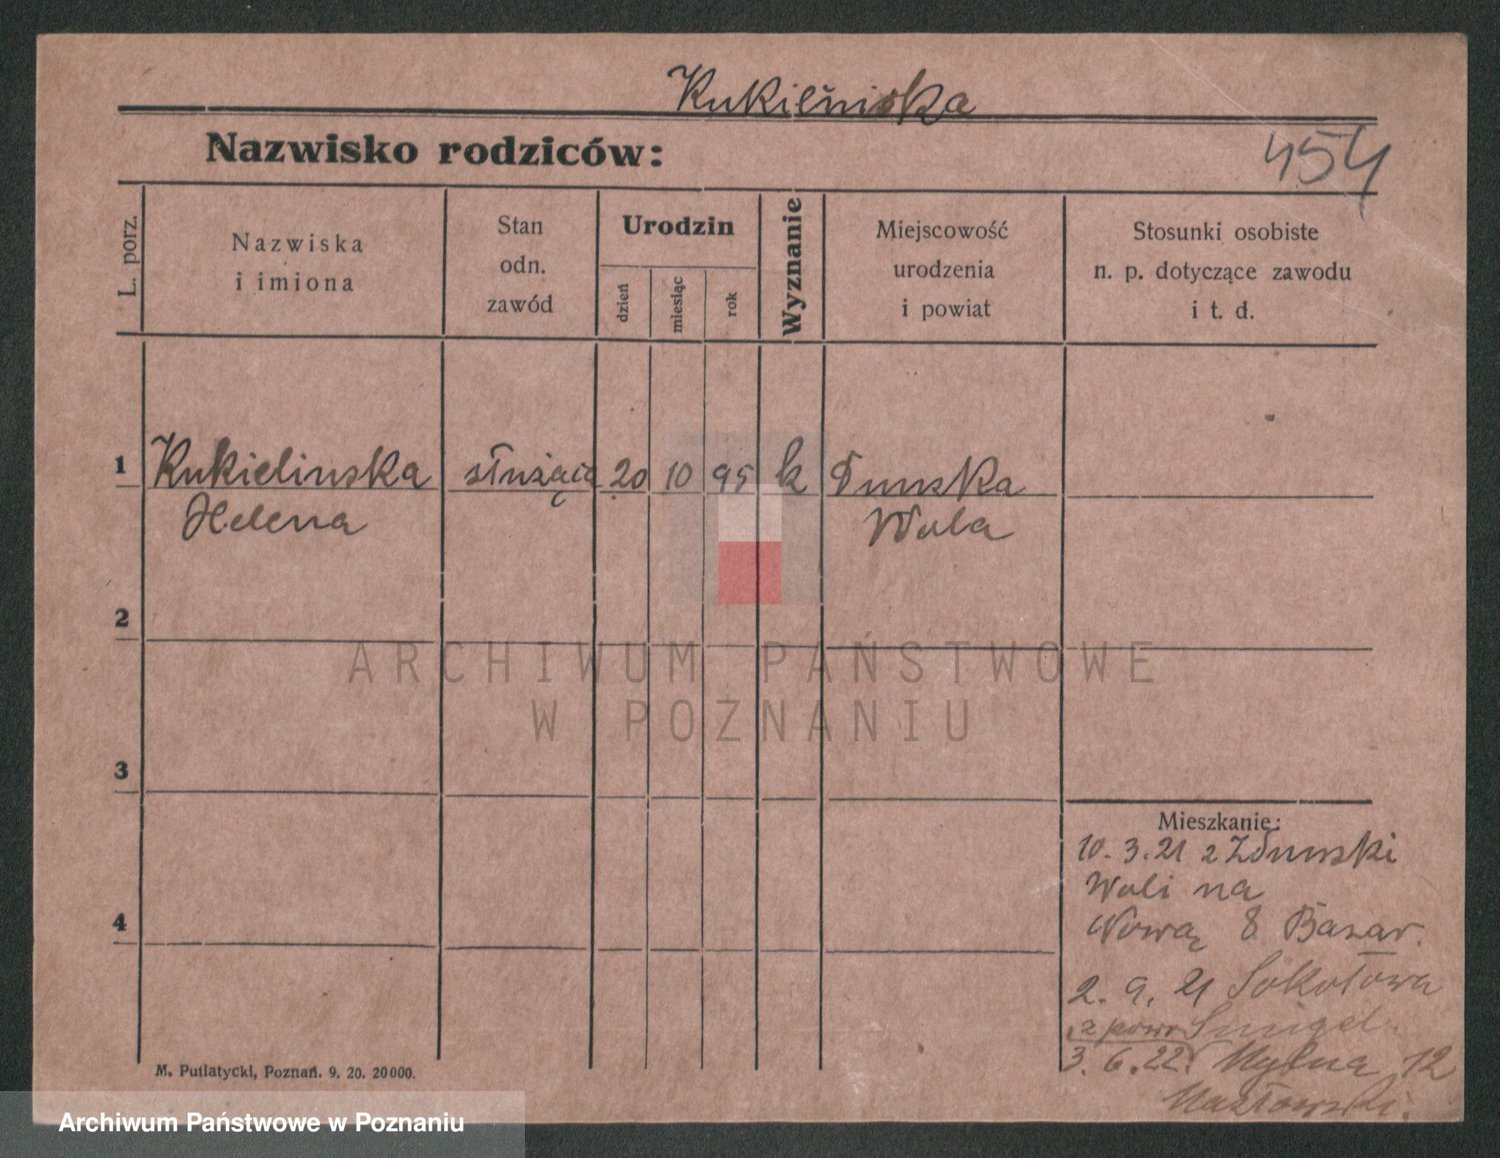 Kukielińska
454
Nazwisko rodziców:
L. porz.
Nazwiska
i imiona
Stan
odn.
zawód
Urodzin
dzień
miesiąc
rok
Wyznanie
Miejscowość
urodzenia
i powiat
Stosunki osobiste
n. p. dotyczące zawodu
i t. d.
1 Kukielinska służąca 20 10 95 k Dunska
Helena Wola
2
3
4
Mieszkanie:
10. 3. 21 z Zdunski
Woli na
Nową 8 Bazar.
2. 9. 21 Sokołowa
z powr
3. 6. 22. Mylna 12
M. Putiatycki, Poznań. 9. 20. 20000.
ARCHIWUM PAŃSTWOWE
W POZNANIU
Archiwum Państwowe w Poznaniu